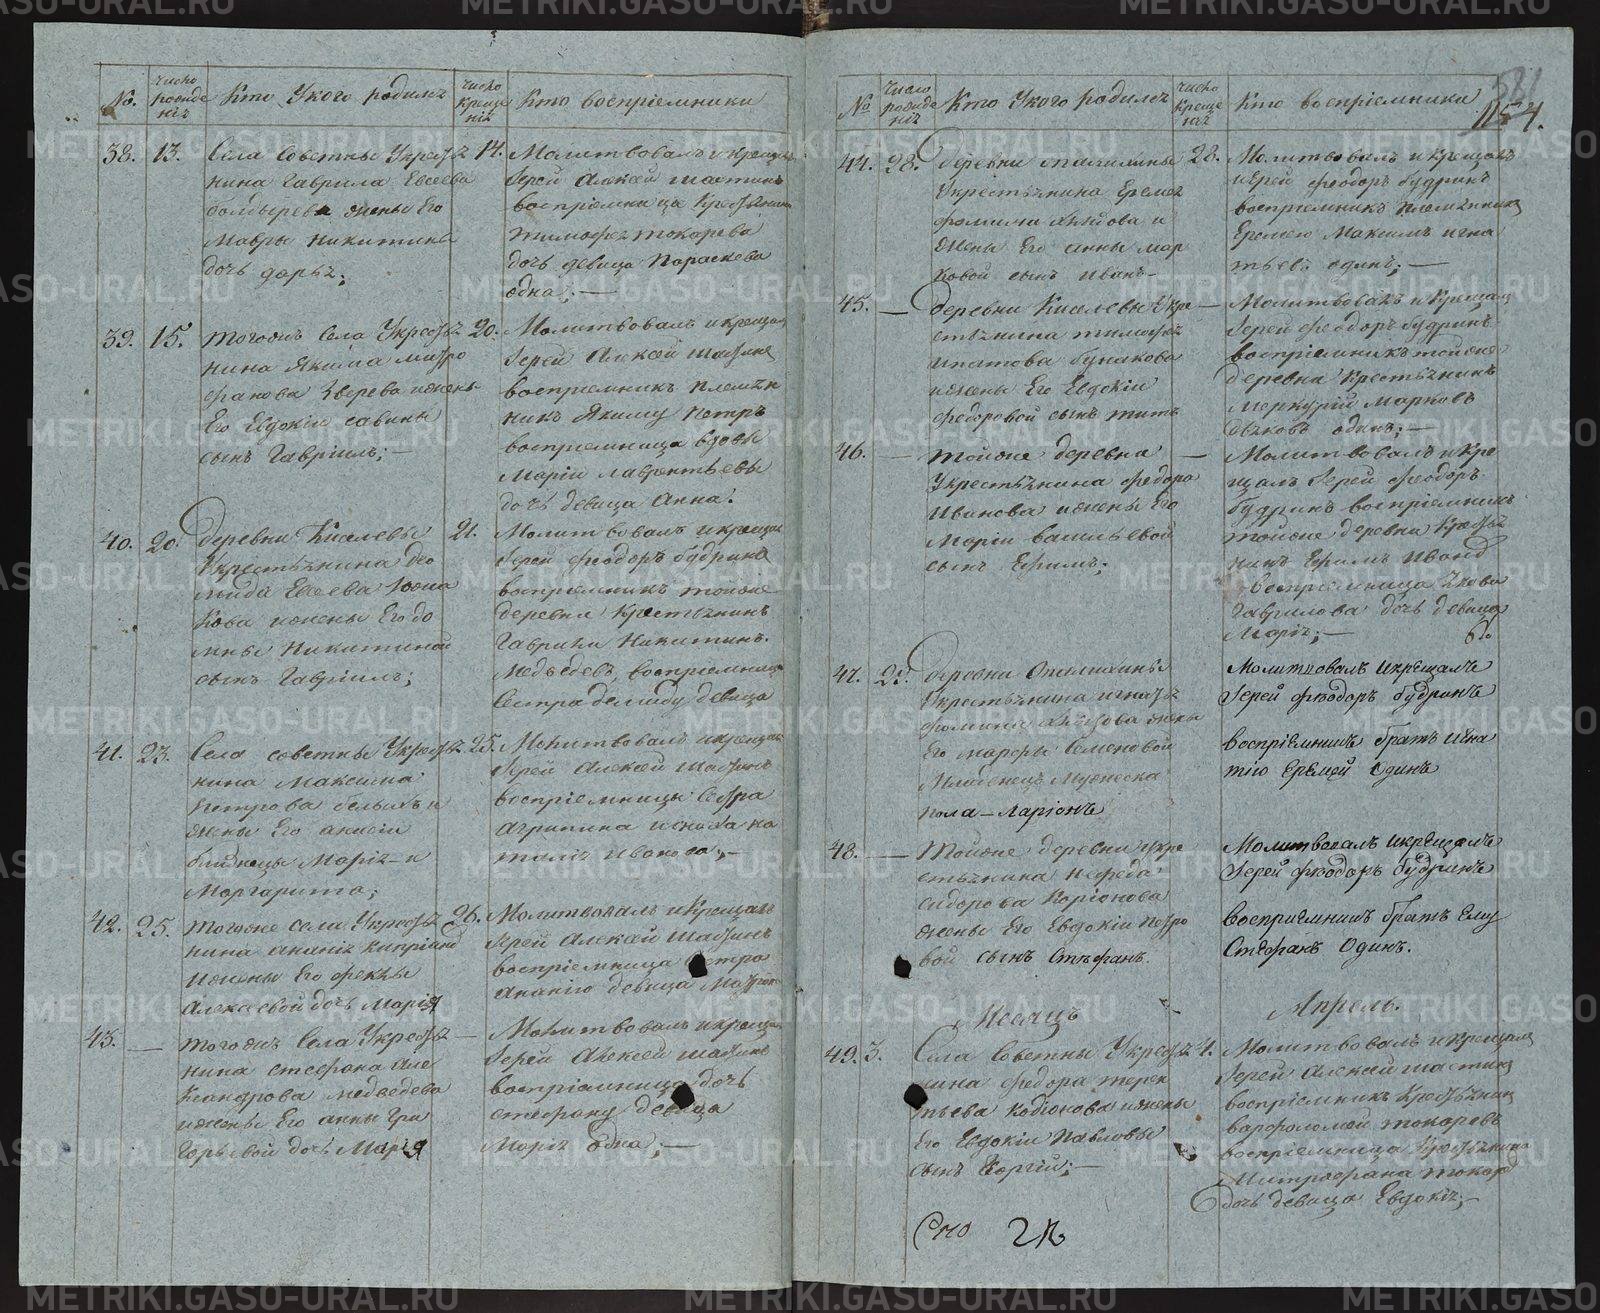 No.
число рожде нія
Кто Укого родился
число креще нія
Кто воспріемники
38. 13.
Села Советны Укресть
нина Гаврила Евсеева
болдырева жены Его
Мавры Никитины
дочь дарья;
14.
Молитвовалъ и крещалъ
Іерей Алексей
воспріемница крестьянина
тимофея токарева
дочь девица Параскева
одна;
39. 15.
тогожъ села Укресть
нина Якима митро
фанова Зверева ижены
Его Евдокіи савины
сынъ Гавріилъ;
20.
Молитвовалъ и крещалъ
Іерей Алексей
воспріемникъ племян
никъ Якиму петръ
воспріемница вдовы
Маріи лаврентьевы
дочь девица Анна.
40. 20.
деревни Киселевы
Укрестьянина де
мида Евсеева
кова ижены Его до
мны Никитиной
сынъ Гавріилъ;
21.
Молитвовалъ и крещалъ
Іерей феодоръ будринъ
воспріемникъ тойже
деревни крестьянинъ
Гаврила Никитинъ
Медведевъ, воспріемница
Сестра демиду девица
41. 23.
Села советны Укресть
нина Максима
Петрова белыхъ и
жены Его анисіи
близнецы Марія и
Маргарита;
25.
Молитвовалъ и крещалъ
Іерей Алексей
воспріемницы Сестра
агрипина и сноха на
талія Иванова;
42. 25.
тогоже села Укресть
нина ананія кипріанов
ижены Его феклы
Алексеевой дочь Марія
26.
Молитвовалъ и крещалъ
Іерей Алексей
воспріемница сестра
ананію девица
43. —
тогожъ Села Укресть
нина стефана Але
ксандрова медведева
ижены Его анны Гри
горьевой дочь Марія
—
Молитвовалъ и крещалъ
Іерей Алексей
воспріемница дочь
стефану девица
Марія одна;
№
число рожде нія
Кто Укого родился
число креще нія
Кто воспріемники
1154.
44. 28.
деревни
Укрестьянина Еремея
фомина и
жены Его анны мар
ковой сынъ иванъ
28.
Молитвовалъ и крещалъ
иерей феодоръ будринъ
воспріемникъ племянникъ
Еремею Максимъ игна
тьевъ одинъ;
45. —
деревни Киселевы Укре
стьянина тимофея
ипатова бунакова
ижены Его Евдокіи
федоровой сынъ титъ
—
Молитвовалъ и крещалъ
Іерей феодоръ будринъ
воспріемникъ тойже
деревни крестьянинъ
меркурій марковъ
одинъ;
46. —
тойже деревни
Укрестьянина федора
Иванова ижены Его
Маріи васильевой
сынъ Ефимъ;
—
Молитвовалъ и кре
щалъ Іерей феодоръ
будринъ воспріемникъ
тойже деревни крестья
нинъ Ефимъ Иванов
воспріемница Якова
Гаврилова дочь девица
Марія;
47. 29.
деревни
Укрестьянина игнатья
фомина жены
Его марфы семеновой
Младенецъ Мужеска
пола — Ларіонъ
Молитвовалъ икрещалъ
Іерей феодоръ будринъ
воспріемникъ братъ игна
тію Еремей Одинъ
48. —
тойже деревни укре
стьянина нефеда
сидорова Ларіонова
жены Его Евдокіи петро
вой сынъ Стефанъ.
Молитвовалъ икрещалъ
Іерей феодоръ будринъ
воспріемникъ братъ Ему
Стефанъ Одинъ.
Месяцъ Апрель.
49. 3.
Села Советны Укресть
нина федора терен
тьева ижены
Его Евдокіи Павловы
сынъ Георгій;
4.
Молитвовалъ и крещалъ
Іерей Алексей
воспріемникъ Крестьянин
варфоломей токаревъ
воспріемница Крестьянина
Митрофана токарев
дочь девица Евдокія;